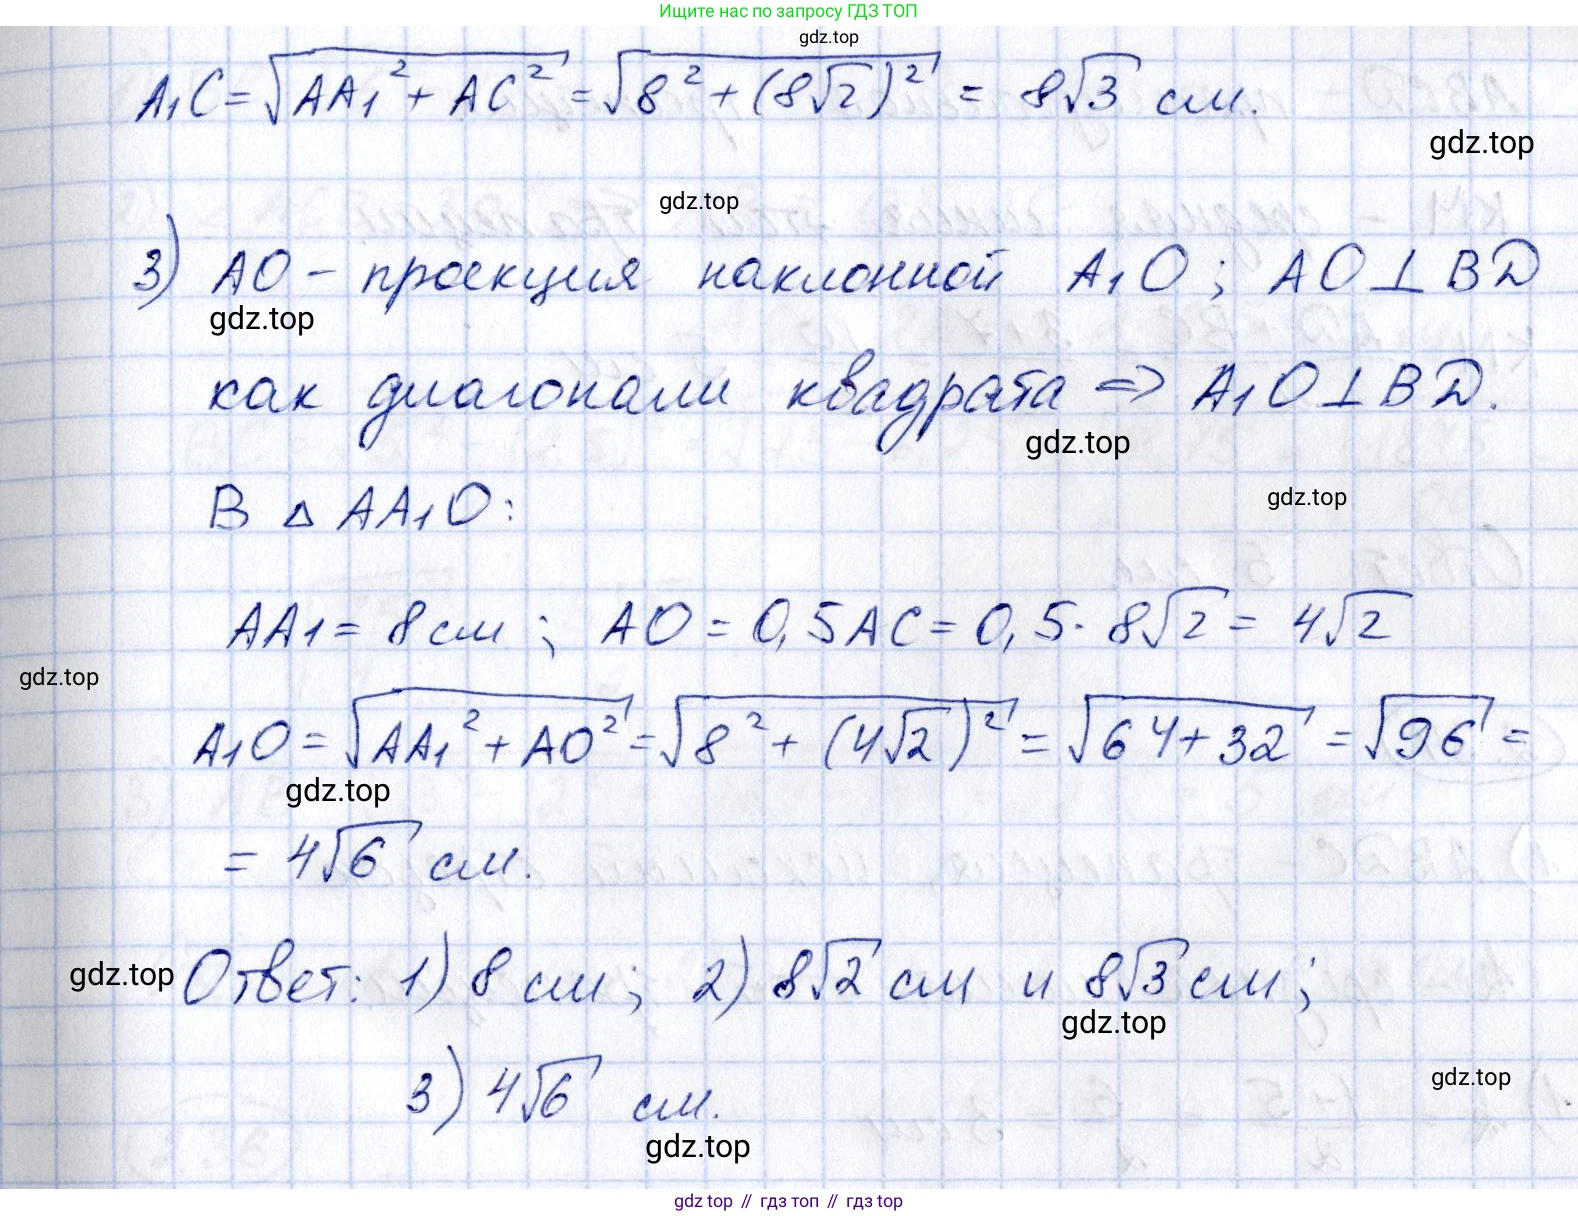 Ищите нас по запросу ГДЗ ТОП
gdz.top
A₁C = √(AA₁² + AC²) = √(8² + (8√2)²) = 8√3 см.
gdz.top
gdz.top
3) AO – проекция наклонной A₁O; AO⊥BD
gdz.top
как диагонали квадрата => A₁O⊥BD.
gdz.top
В △ AA₁O:
gdz.top
AA₁ = 8 см; AO = 0,5AC = 0,5 · 8√2 = 4√2
gdz.top
A₁O = √(AA₁² + AO²) = √(8² + (4√2)²) = √(64+32) = √96 =
gdz.top
= 4√6 см.
Ответ: 1) 8 см; 2) 8√2 см и 8√3 см;
gdz.top
gdz.top
3) 4√6 см.
gdz.top
gdz.top
gdz top // гдз топ // гдз top